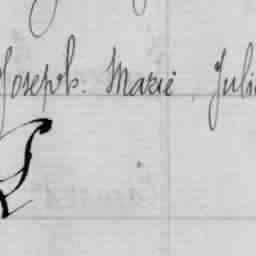 Joseph. Marie, Juli